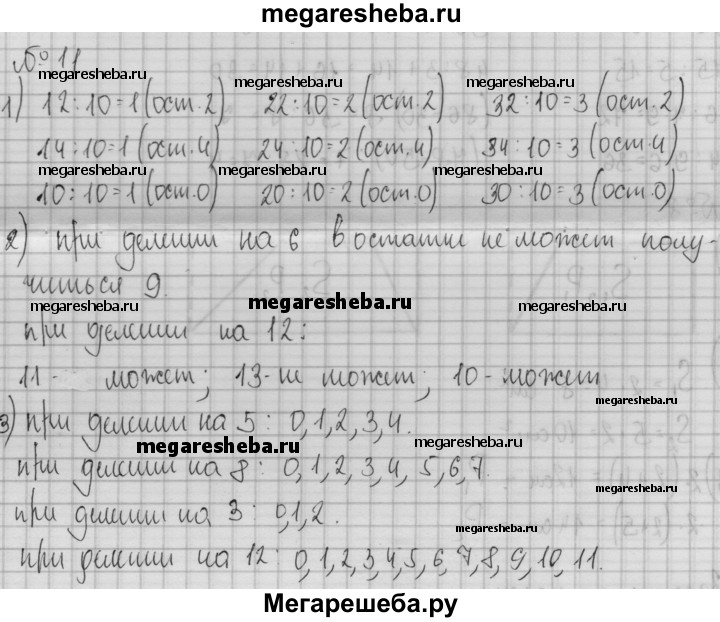 megaresheba.ru
№ 11
megaresheba.ru megaresheba.ru megaresheba.ru
1) 12:10=1(ост.2) 22:10=2(ост.2) 32:10=3(ост.2)
megaresheba.ru
14:10=1(ост.4) 24:10=2(ост.4) 34:10=3(ост.4)
megaresheba.ru megaresheba.ru megaresheba.ru
10:10=1(ост.0) 20:10=2(ост.0) 30:10=3(ост.0)
2) при делении на 6 в остатке не может полу-
читься 9.
megaresheba.ru megaresheba.ru megaresheba.ru
при делении на 12:
11- может; 13-не может; 10-может
megaresheba.ru
3) при делении на 5: 0,1,2,3,4.
megaresheba.ru megaresheba.ru
при делении на 8: 0,1,2,3,4,5,6,7.
megaresheba.ru
при делении на 3: 0,1,2.
megaresheba.ru
при делении на 12: 0,1,2,3,4,5,6,7,8,9,10,11.
megaresheba.ru megaresheba.ru
Мегарешеба.ру